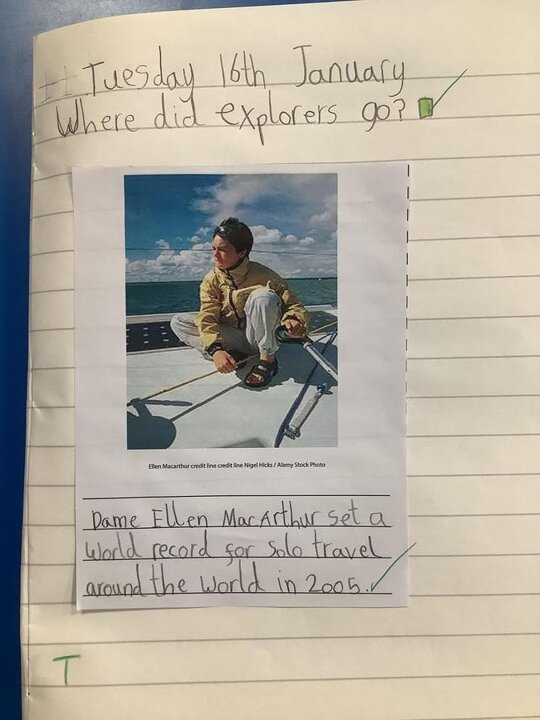 Tuesday 16th January
Where did explorers go?
Ellen Macarthur credit line credit line Nigel Hicks / Alamy Stock Photo
Dame Ellen MacArthur set a
World record for Solo travel
around the World in 2005.
T